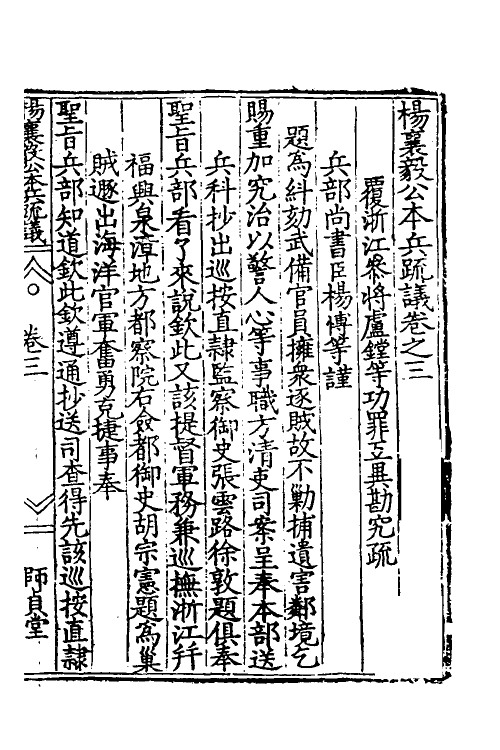 楊襄毅公本兵疏議卷之三
覆浙江叅將盧鏜等功罪互異勘究疏
兵部尚書臣楊博等謹
題為糾劾武備官員擁衆逐賊故不勦捕遺害鄰境乞
賜重加究治以警人心等事職方清吏司案呈奉本部送
兵科抄出巡按直隷監察御史張雲路徐敦題俱奉
聖旨兵部看了來說欽此又該提督軍務兼巡撫浙江并
福興泉漳地方都察院右僉都御史胡宗憲題為巢
賊遯出海洋官軍奮勇克捷事奉
聖旨兵部知道欽此欽遵通抄送司查得先該巡按直隷
楊襄毅公本兵疏議
卷三
師貞堂